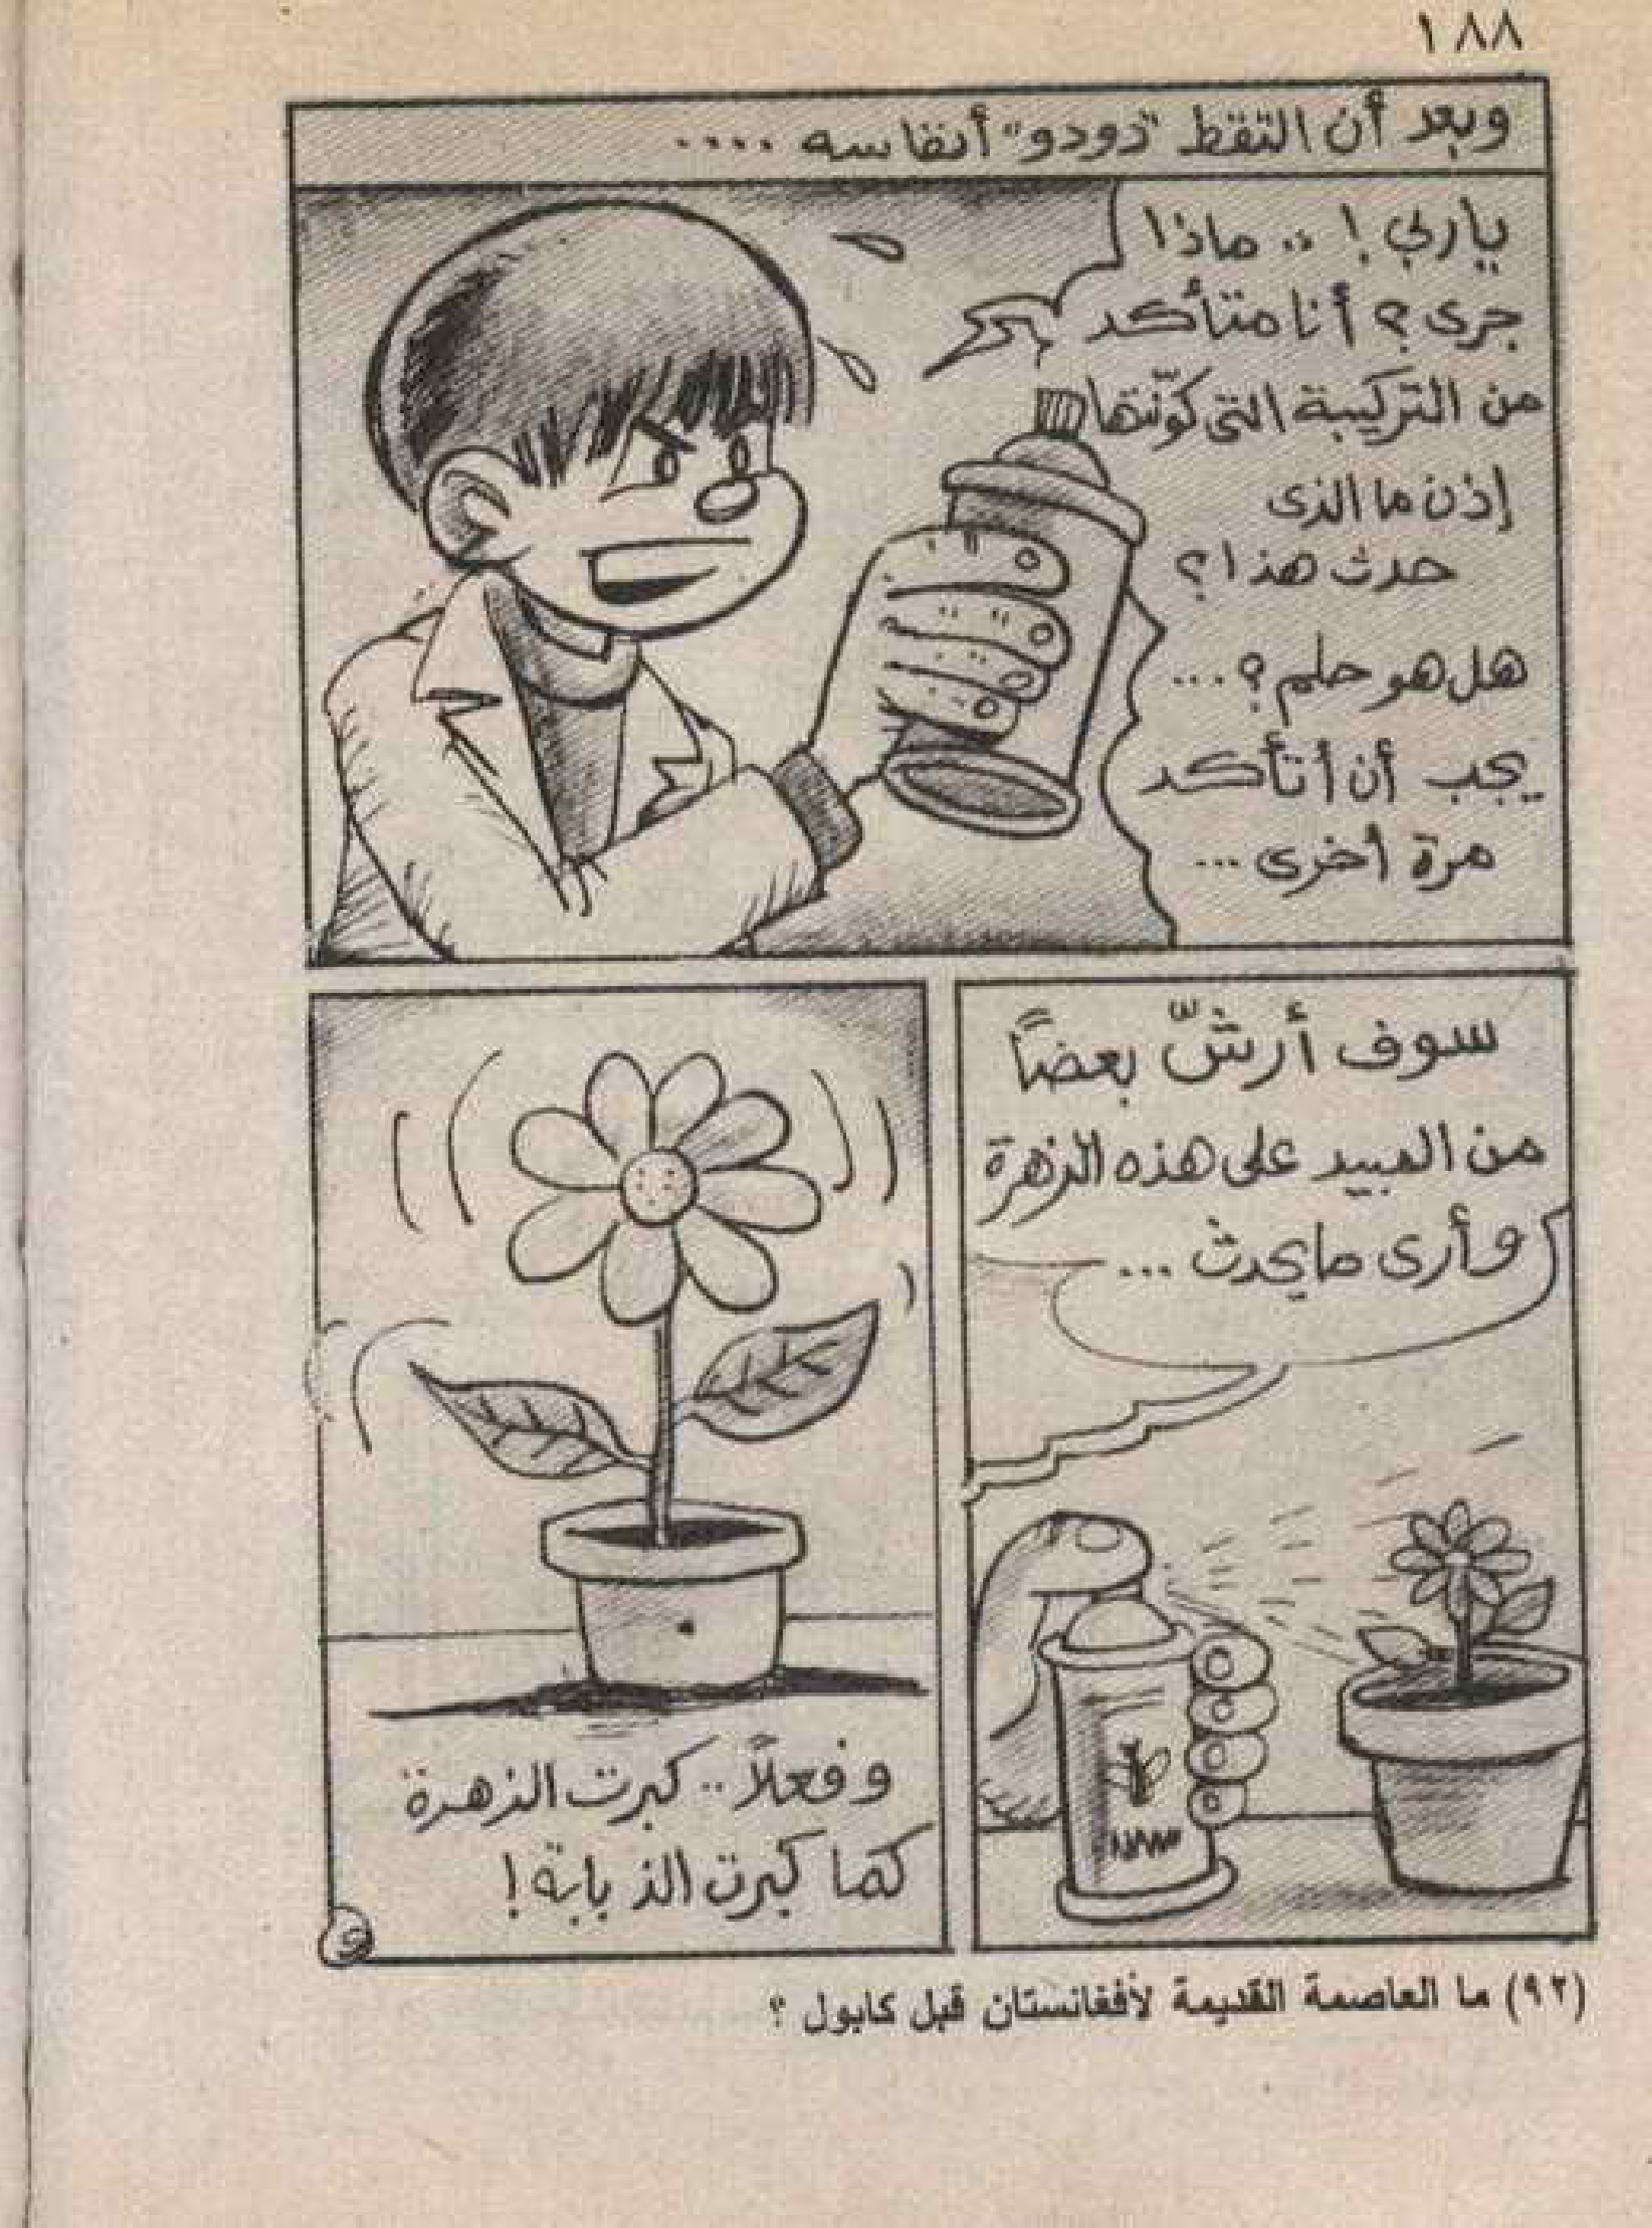 ١٨٨
وبعد أن التقط "دودو" أنفاسه ....
ياربي ! .. ماذا
جرى ؟ أنا متأكد
من التركيبة التى كوّنتها
إذن ما الذى
حدث هذا ؟
هل هو حلم ؟ ...
يجب أن أتأكد
مرة أخرى ...
سوف أرشّ بعضاً
من المبيد على هذه الزهرة
وأرى مايحدث ...
وفعلاً .. كبرت الزهرة
كما كبرت الذبابة !
(٩٢) ما العاصمة القديمة لأفغانستان قبل كابول ؟